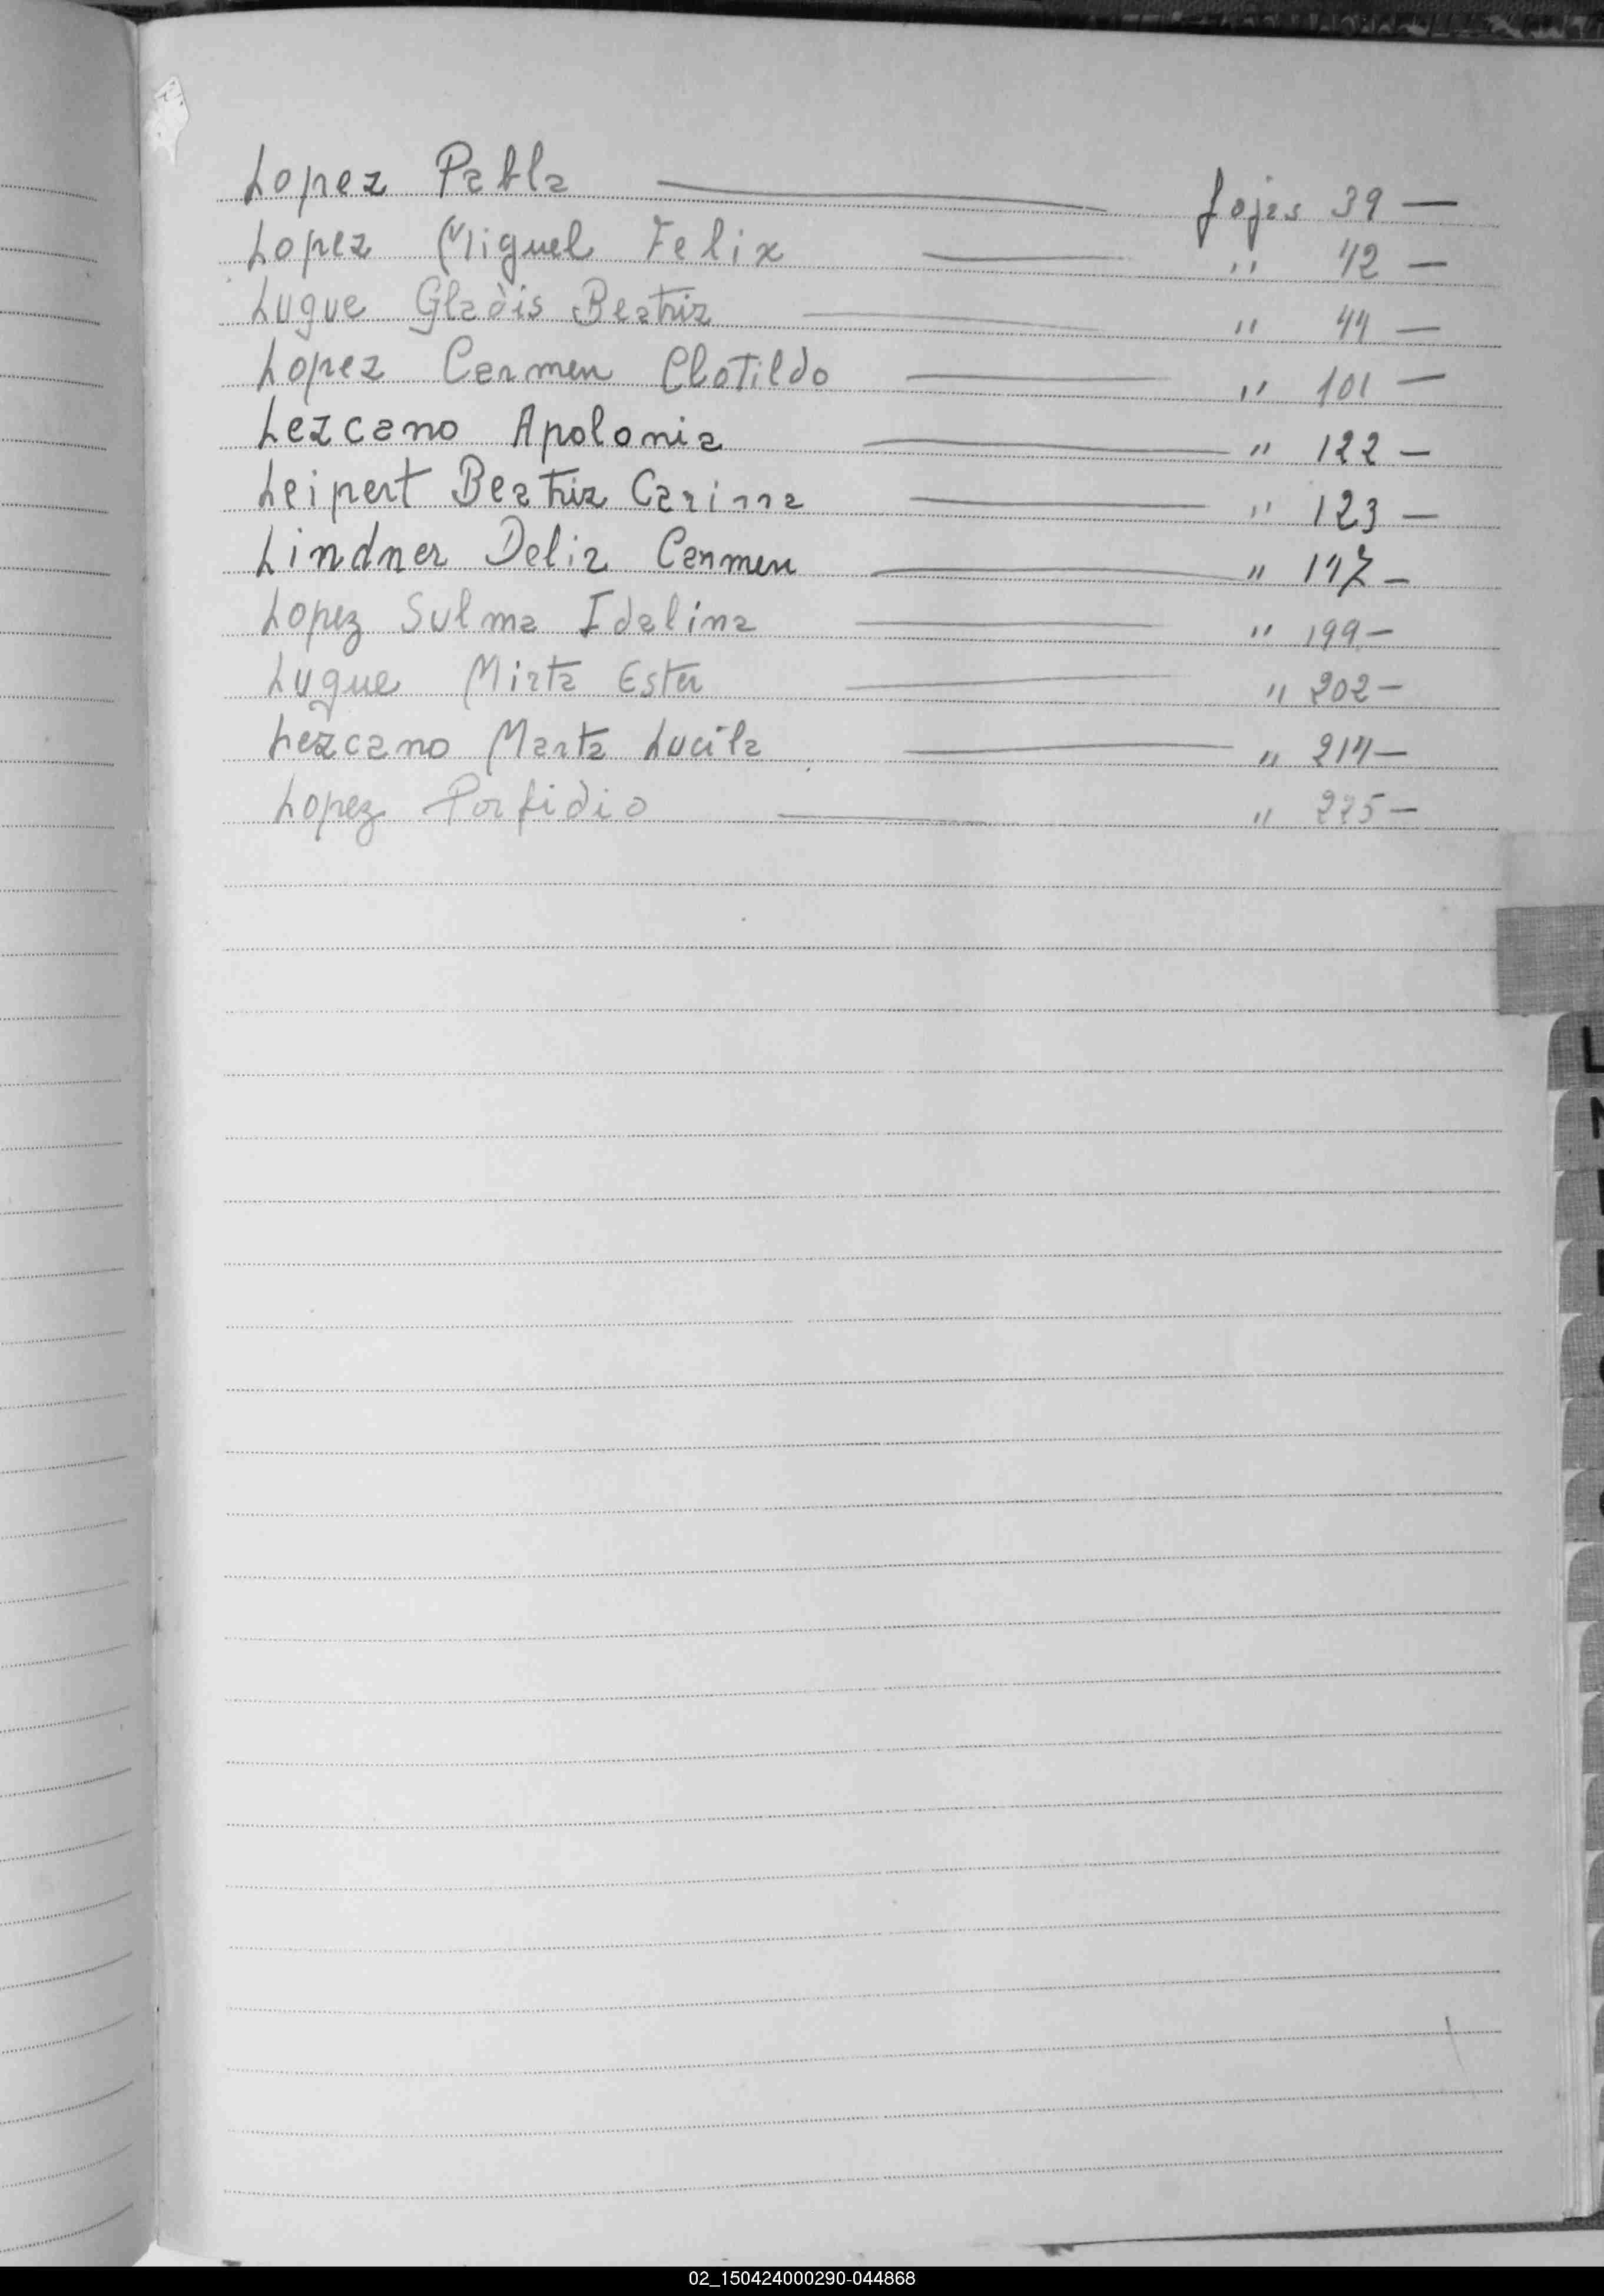 Lopez Pabla — fojas 39 —
Lopez Miguel Felix — " 42 —
Luque Gladis Beatriz — " 44 —
Lopez Carmen Clotildo — " 101 —
Lezcano Apolonia — " 122 —
Leipert Beatriz Carina — " 123 —
Lindner Delia Carmen — "
Lopez Sulma Idalina — " 199 —
Luque Mirta Ester — " 202 —
Lezcano Marta Lucila — " 214 —
Lopez Porfidio — " 225 —
L
02_150424000290-044868